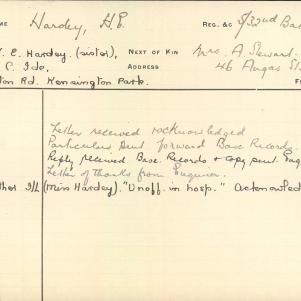 ME Hardey, H.E. REG. &C 8/32nd Ba
. E. Hardey. (sister), NEXT OF KIN Mrs. A. Stewart.
C. Ide, ADDRESS 46 Angas St
ton Rd. Kensington Park.
Letter received & acknowledged
Particulars sent forward Base Records.
Reply received Base Records & copy sent
Letter of thanks from Enquirer.
ther I/L (Miss Hardey). "Unoff. in hosp." Acknowled